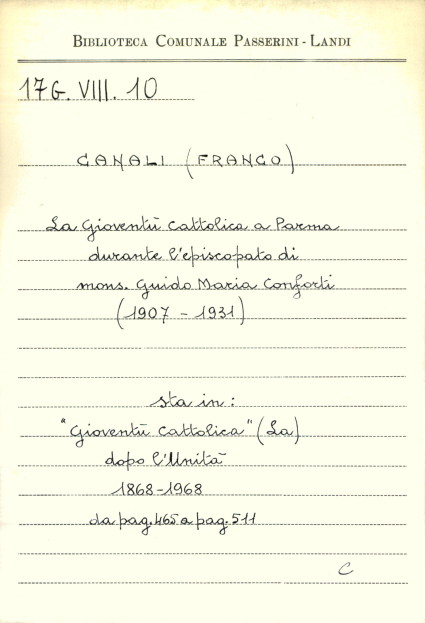 BIBLIOTECA COMUNALE PASSERINI - LANDI
17G. VIII. 10
CANALI (FRANCO)
La Gioventù Cattolica a Parma
durante l'episcopato di
mons. Guido Maria Conforti
(1907 - 1931)
sta in :
"Gioventù Cattolica" (La)
dopo l'Unità
1868-1968
da pag. 465 a pag. 511
C